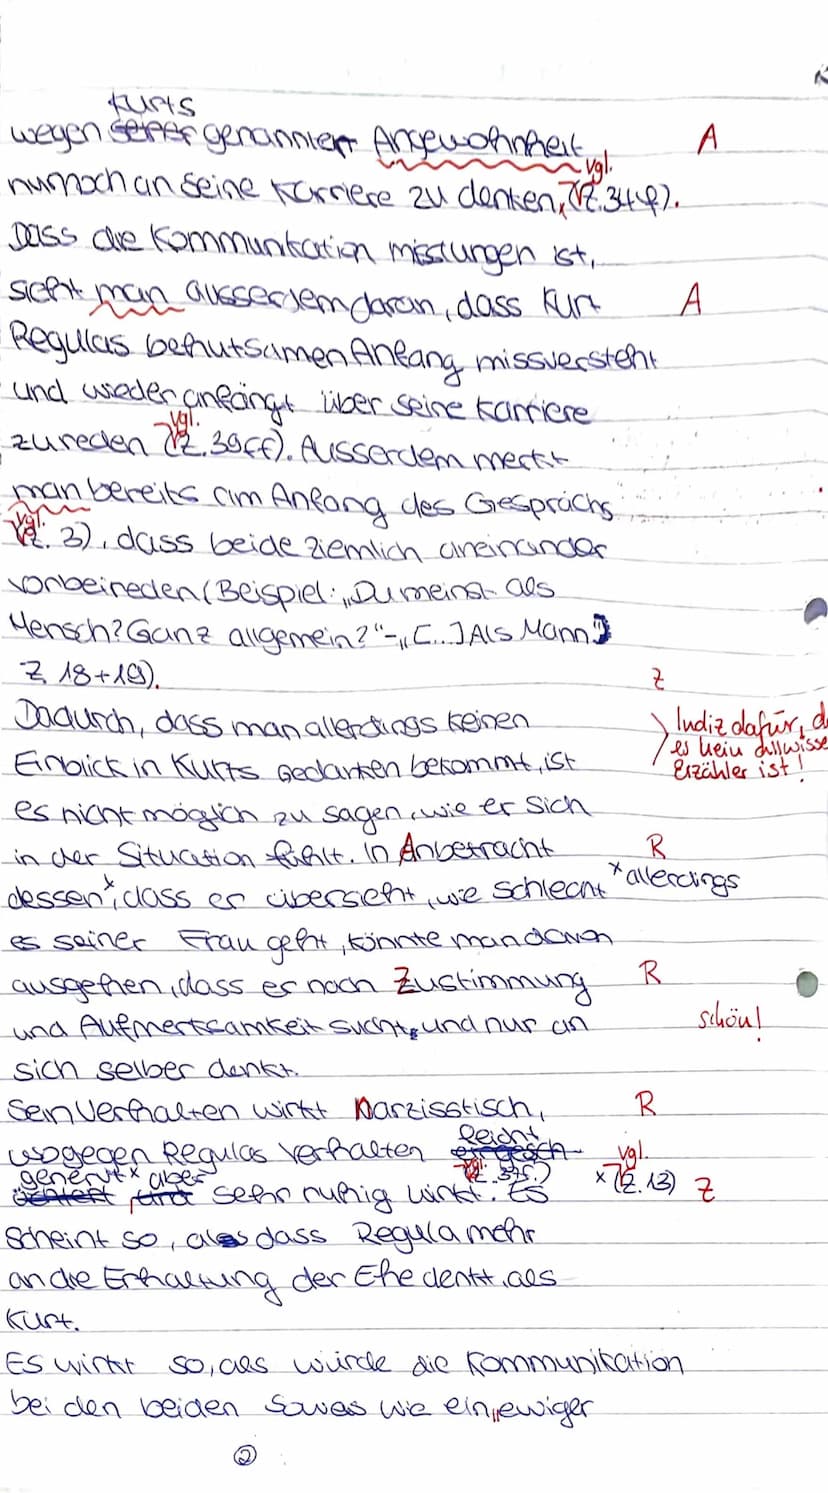 Kurts
wegen seiner genannten Angewohnheit A
vgl.
nurnoch an seine Karriere zu denken, (Z. 34f).
Dass die Kommunikation misslungen ist,
sieht man ausserdem daran, dass Kurt A
Regulas behutsamen Anfang missversteht
und wieder anfängt über seine Karriere
vgl.
zu reden (Z. 39ff). Ausserdem merkt
man bereits am Anfang des Gesprächs
(vgl. Z. 3), dass beide ziemlich aneinander
vorbeireden (Beispiel: „Du meinst als
Mensch? Ganz allgemein?“ - „[...] Als Mann“
Z. 18+19). Z
Dadurch, dass man allerdings keinen Indiz dafür, d
Einblick in Kurts Gedanken bekommt, ist es kein allwisse
Erzähler ist!
es nicht möglich zu sagen, wie er sich
in der Situation fühlt. In Anbetracht R
dessen x, dass er übersieht, wie schlecht x allerdings
es seiner Frau geht, könnte man davon
ausgehen, dass er nach Zustimmung R
und Aufmerksamkeit sucht und nur an schön!
sich selber denkt.
Sein Verhalten wirkt narzisstisch, R
leicht
wogegen Regulas Verhalten vgl.
genervt x aber x (Z. 13) Z
sehr ruhig wirkt. Es
scheint so, als dass Regula mehr
an die Erhaltung der Ehe denkt als
Kurt.
Es wirkt so, als würde die Kommunikation
bei den beiden sowas wie ein „ewiger
2